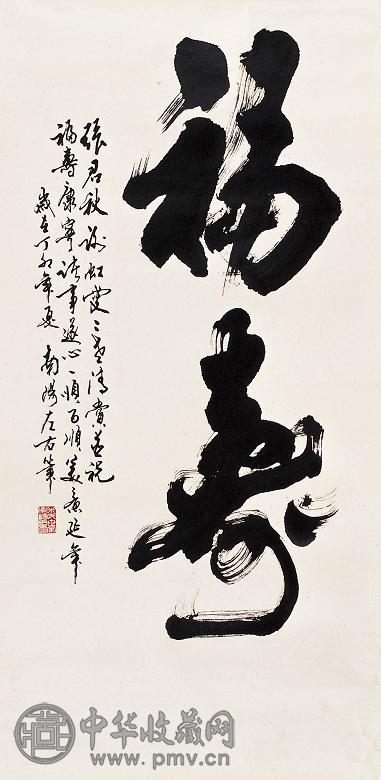 福壽
張君秋謝虹雯二老清賞並祝
福壽康寧諸事遂心一順百順美意延年
歲在丁卯年夏 南陽左右筆
中华收藏网
www.pmv.cn